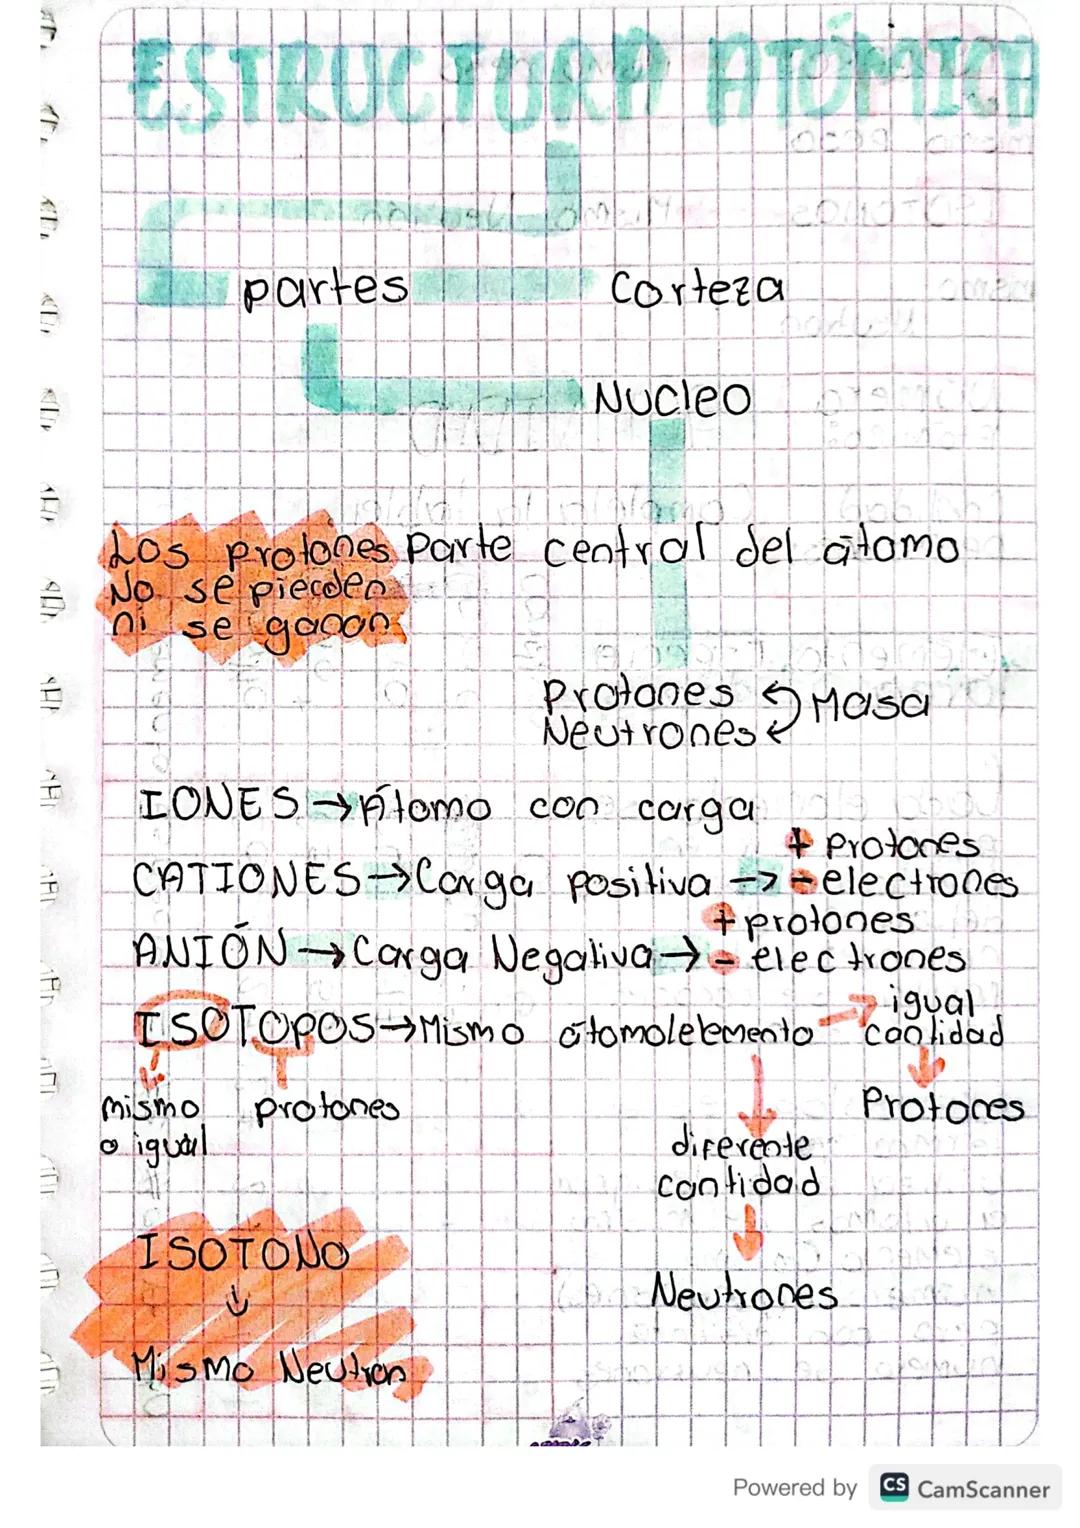 ESTRUCTURA ATÓMICA
partes Corteza
Nucleo
Los protones Parte central del átomo
No se pierden
ni se ganan
Protones
Neutrones Masa
IONES → Átomo con carga
+ Protones
CATIONES → Carga positiva → - electrones
+ protones
ANIÓN → Carga Negativa → - electrones
igual
ISOTOPOS → Mismo átomo/elemento → cantidad
mismo protones Protones
o igual diferente
cantidad
ISOTONO
Neutrones
Mismo Neutron
Powered by CS CamScanner